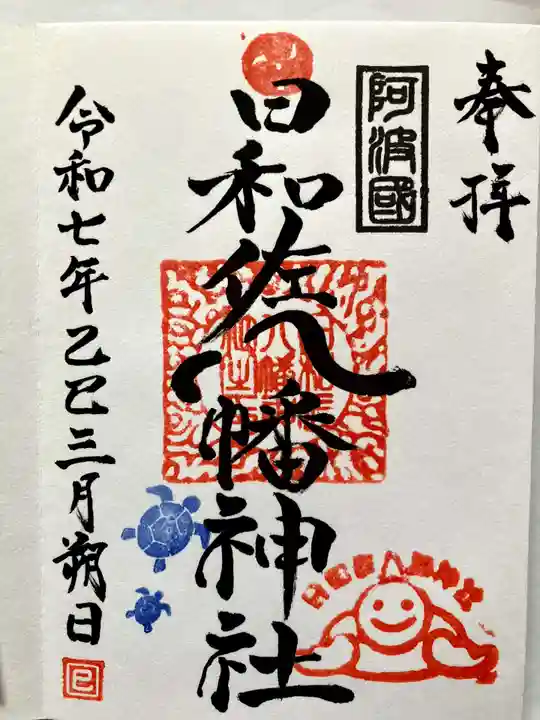 奉拝
阿波國
日和佐八幡神社
令和七年乙巳三月朔日
巳